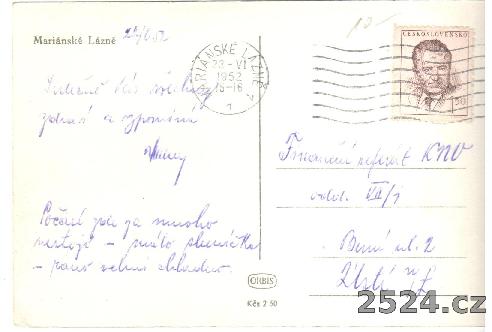 Mariánské Lázně 23/6 52
MARIÁNSKÉ LÁZNĚ
23 - VI
1952
15-16
1
ČESKOSLOVENSKO
1,50
Srdečně Vás všechny
zdraví a vzpomíná
Finanční referát KNV
odd. VII/1
Počasí zde za mnoho
nestojí - málo sluníčka
- ráno velmi chladno.
Berní ul. 2
Ústí n/L
ORBIS
Kčs 2·50
2524.cz